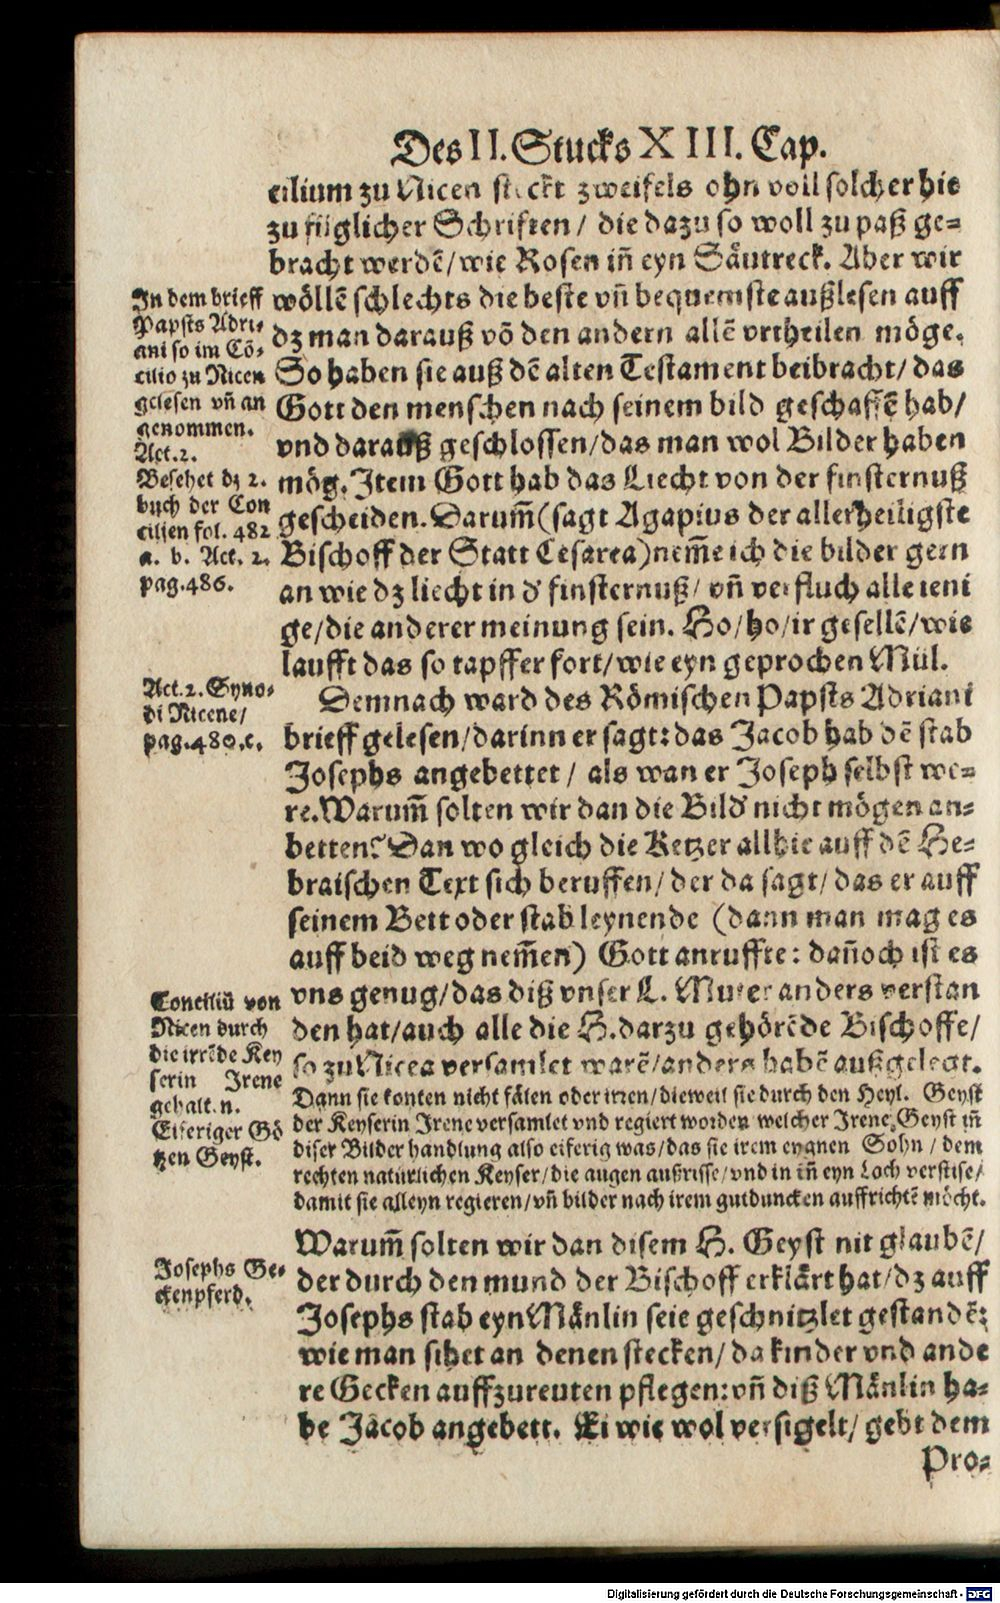 Des II. Stucks XIII. Cap.
cilium zu Nicen steckt zweifels ohn voll solcher hie
zu füglicher Schriften / die dazu so woll zu paß ge⸗
bracht werdē / wie Rosen iñ eyn Säutreck. Aber wir
wöllē schlechts die beste vñ bequemste außlesen auff
dz man darauß võ den andern allē vrtheilen möge.
So haben sie auß dē alten Testament beibracht / das
Gott den menschen nach seinem bild geschaffē hab /
vnd darauß geschlossen / das man wol Bilder haben
mög. Item Gott hab das Liecht von der finsternuß
gescheiden. Darum̃ (sagt Agapius der allerheiligste
Bischoff der Statt Cesarea) nem̃e ich die bilder gern
an wie dz liecht in d' finsternuß / vñ verfluch alle ieni
ge / die anderer meinung sein. Ho / ho / ir gesellē / wie
laufft das so tapffer fort / wie eyn geprochen Mül.
Demnach ward des Römischen Papsts Adriani
brieff gelesen / darinn er sagt: das Jacob hab dē stab
Josephs angebettet / als wan er Joseph selbst we⸗
re. Warum̃ solten wir dan die Bild' nicht mögen an⸗
betten? Dan wo gleich die Ketzer allhie auff dē He⸗
braischen Text sich beruffen / der da sagt / das er auff
seinem Bett oder stab leynende (dann man mag es
auff beid weg nem̃en) Gott anruffte: dañoch ist es
vns genug / das diß vnser L. Muter anders verstan
den hat / auch alle die H. darzu gehörēde Bischoffe /
so zu Nicea versamlet warē / anders habē außgelegt.
Dann sie konten nicht fälen oder irren / dieweil sie durch den Heyl. Geyst
der Keyserin Irene versamlet vnd regiert worden welcher Irene Geyst iñ
diser Bilder handlung also eiferig was / das sie irem eygnen Sohn / dem
rechten natürlichen Keyser / die augen außrisse / vnd in iñ eyn Loch verstise /
damit sie alleyn regieren / vñ bilder nach irem gutduncken auffrichtē möcht.
Warum̃ solten wir dan disem H. Geyst nit glaubē /
der durch den mund der Bischoff erklärt hat / dz auff
Josephs stab eyn Mänlin seie geschnitzlet gestandē:
wie man sihet an denen stecken / da kinder vnd ande
re Gecken auffzureuten pflegen: vñ diß Mänlin ha⸗
be Jacob angebett. Ei wie wol versigelt / gebt dem
Pro⸗
In dem brieff
Papsts Adri⸗
ani so im Cō⸗
cilio zu Nicen
gelesen vñ an
genommen.
Act. 2.
Besehet dz 2.
buch der Con
cilien fol. 482
a. b. Act. 2.
pag. 486.
Act. 2. Syno⸗
di Nicene /
pag. 480. c.
Conciliū von
Nicen durch
die irrēde Key
serin Irene
gehalten.
Eiferiger Gö
tzen Geyst.
Josephs Ge⸗
ckenpferd.
Digitalisierung gefördert durch die Deutsche Forschungsgemeinschaft - DFG